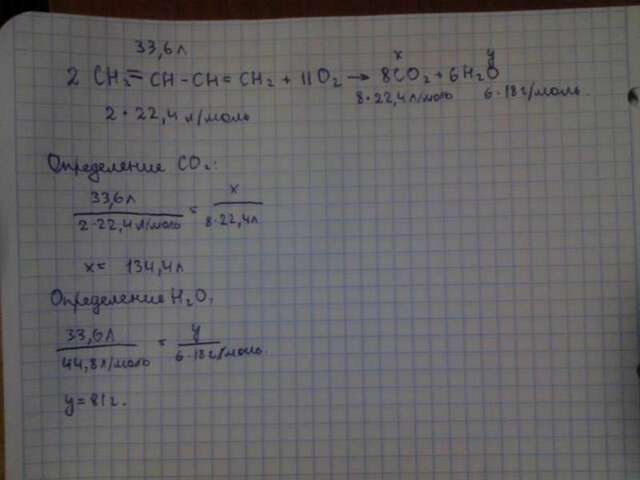 33,6 л x y
2 CH₂=CH-CH=CH₂ + 11O₂ → 8CO₂ + 6H₂O
2·22,4 л/моль 8·22,4 л/моль 6·18 г/моль.
Определение CO₂:
33,6 л / 2·22,4 л/моль = x / 8·22,4 л
x = 134,4 л
Определение H₂O:
33,6 л / 44,8 л/моль = y / 6·18 г/моль.
y = 81 г.